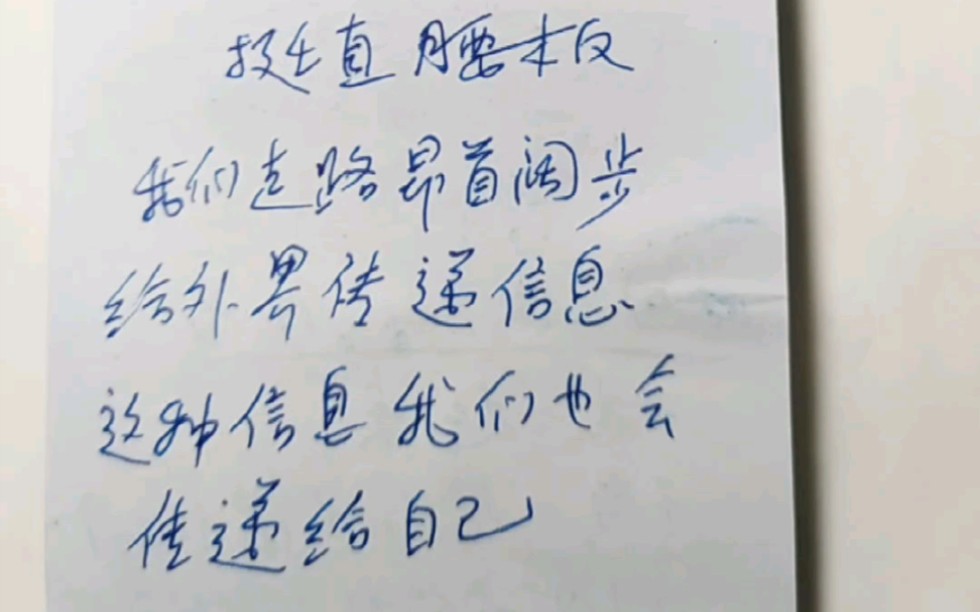 挺直腰板
我们走路昂首阔步
给外界传递信息
这种信息我们也会
传递给自己